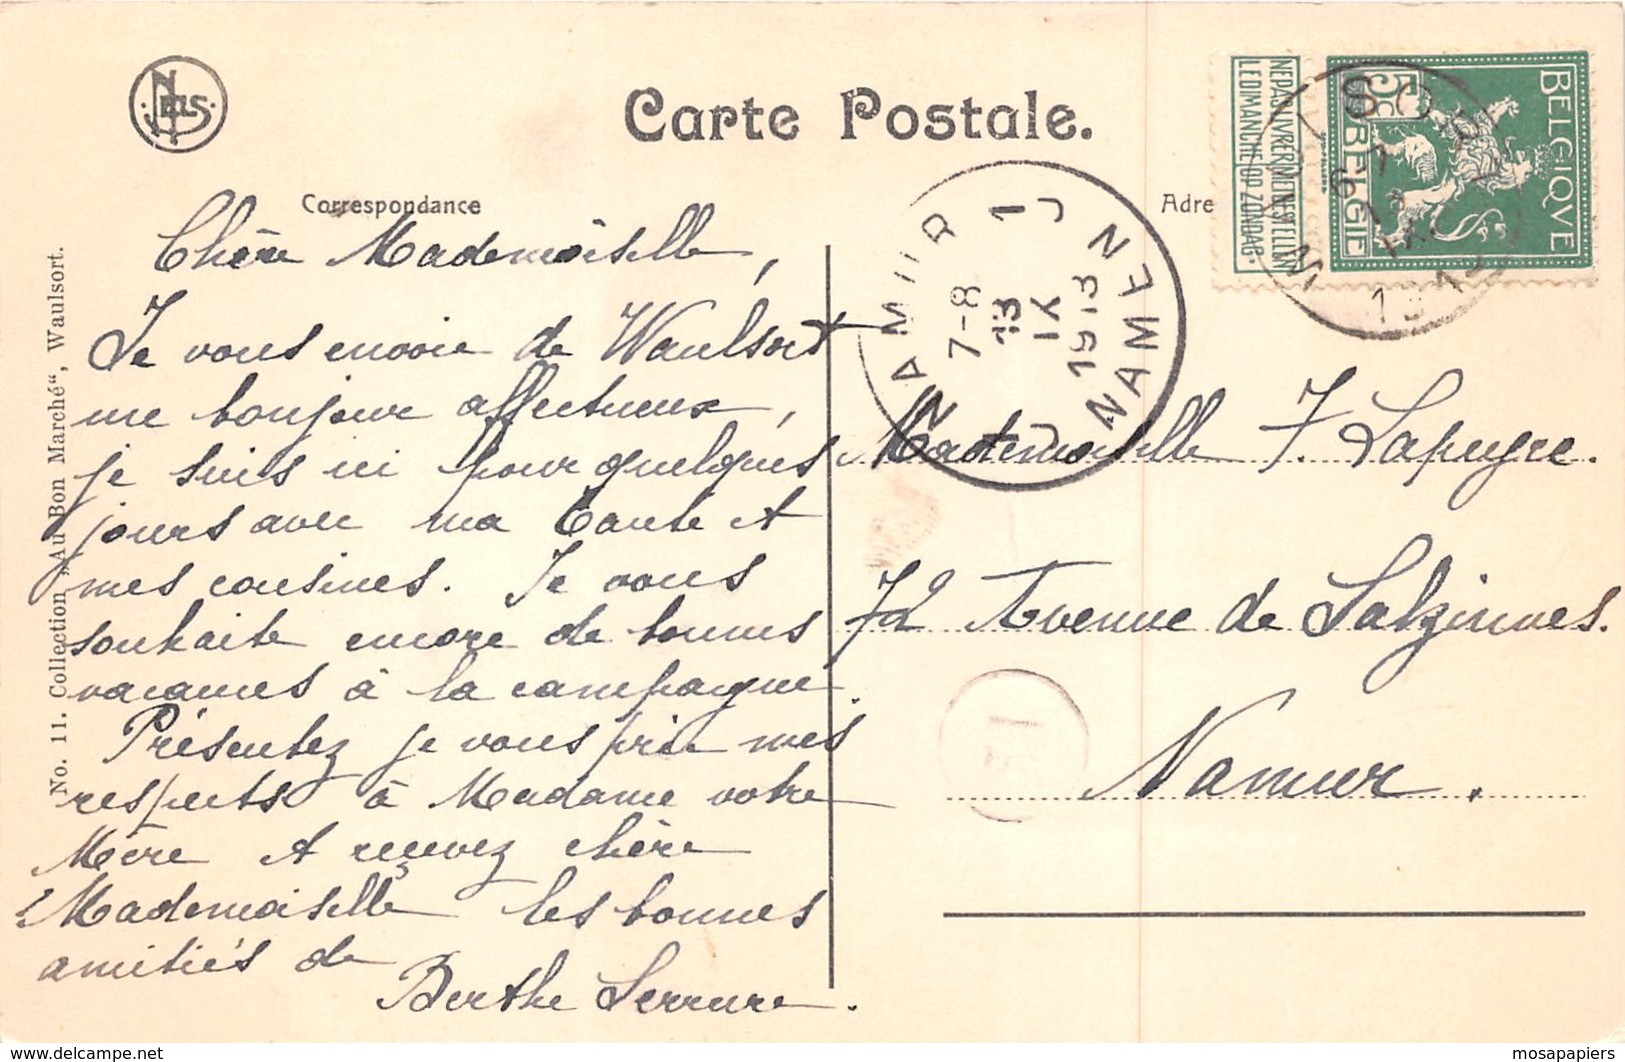 Nels
Carte Postale.
Correspondance
Adre
BELGIQVE
BELGIË
5
NE PAS LIVRER LE DIMANCHE
NIET BESTELLEN OP ZONDAG
NAMUR 1
7-8
13
IX
1913
NAMEN
No. 11. Collection „Au Bon Marché“, Waulsort.
Chère Mademoiselle,
Je vous envoie de Waulsort
me bonjour affectueux,
je suis ici pour quelques
jours avec ma tante et
mes cousines. Je vous
souhaite encore de bonnes
vacances à la campagne.
Présentez je vous prie mes
respects à Madame votre
Mère et recevez chère
Mademoiselle les bonnes
amitiés de
Berthe Serrure.
Mademoiselle F. Lapuyre.
72 Avenue de Salzinnes.
Namur.
mosapapiers
www.delcampe.net